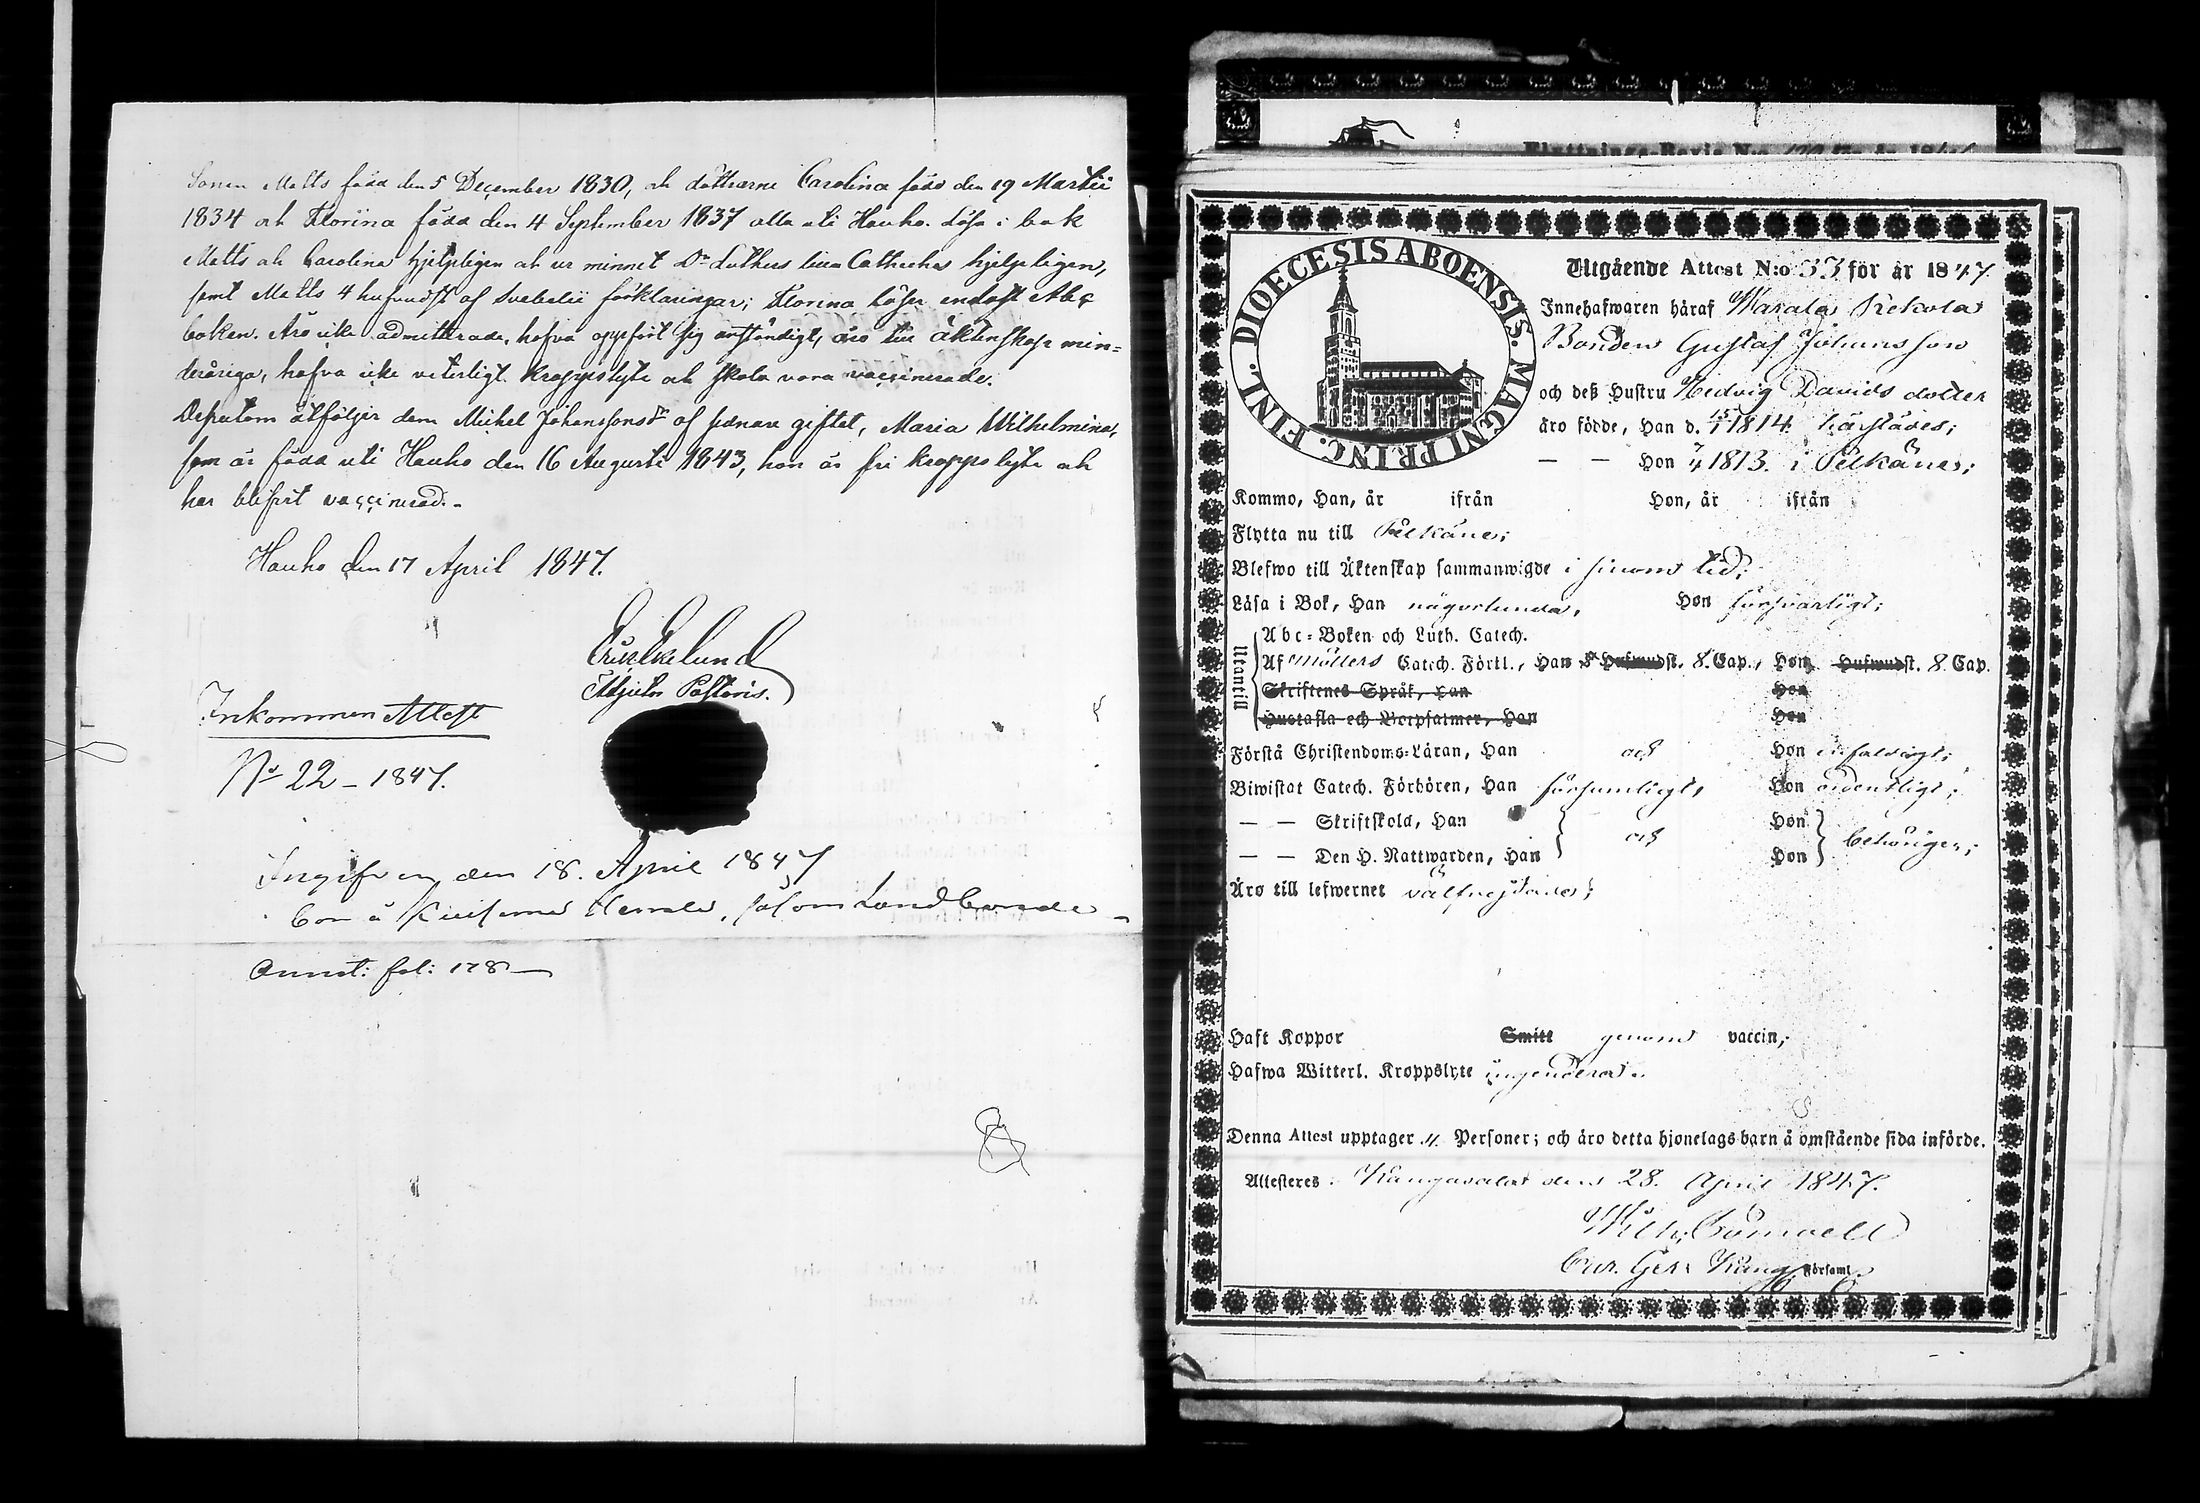 Sonen Matts född den 5 December 1830, och döttrarne Carolina född den 19 Martii
1834 och Florina född den 4 September 1837 alla uti Hauho. Läsa i bok
Matts och Carolina hjelpligen och ur minnet Dr Luthers lilla Catheches hjelpligen,
samt Matts 4 hufvudst af Svebelii förklaringar; Florina läser endast Abc
boken. Äro icke admitterade, hafva uppfört sig anständigt, äro till äktenskap min=
deråriga, hafva icke veterligt kroppslyte och skola vara vaccinerade.
Dessutom åtföljer dem Michel Johanssons dr af senare giftet, Maria Wilhelmina,
som är född uti Hauho den 16 Augusti 1843, hon är fri kroppslyte och
har blifvit vaccinerad.-
Hauho den 17 April 1847.
Eric Ekelund
Adjutor Pastoris.
Inkommen Attest
No 22 - 1847.
Ingifven den 18. April 1847
såsom Landbonde -
Annot: fol: 178 -
Flyttnings-Bevis N:o
DIOECESIS ABOENSIS. MAGNI PRINC. FINL.
Utgående Attest N:o 33 för år 1847.
Innehafwaren häraf Warala Kekola
Bonden Gustaf Johansson
och deß Hustru Hedvig Davids dotter
äro födde, Han d. 15/1 1814 härstädes;
— — Hon 7/4 1813. i Pelkäne;
Kommo, Han, år ifrån Hon, år ifrån
Flytta nu till Pelkäne;
Blefwo till Äktenskap sammanwigde i sinom tid;
Läsa i Bok, Han någorlunda, Hon försvarligt;
Utantill
Abc-Boken och Luth. Catech.
Af Möllers Catech. Förkl., Han Hufwudst. 8. Cap., Hon Hufwudst. 8. Cap.
Skriftenes Språk, Han Hon
Hustafla och Botpsalmer, Han Hon
Förstå Christendoms-Läran, Han och Hon enfaldigt;
Biwistat Catech. Förhören, Han försumligt, Hon ordentligt;
— — Skriftskola, Han och Hon behörigen;
— — Den H. Nattwarden, Han Hon
Äro till lefwernet välfrejdade;
Haft Koppor Smitt genom vaccin;
Hafwa Witterl. Kroppslyte ingendera.
Denna Attest upptager 4 Personer; och äro detta hjonelags barn å omstående sida införde.
Attesteres. Kangasala den 28. April 1847.
Församl.